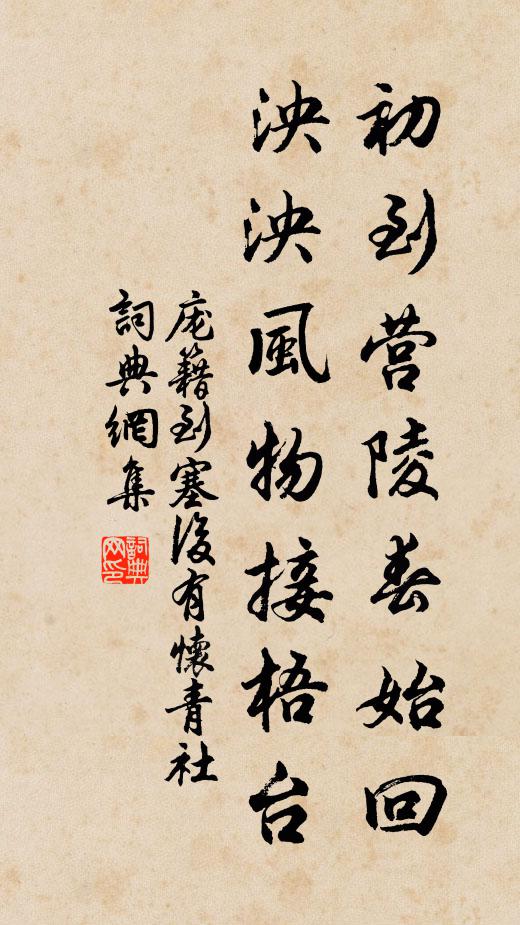 初到营陵春始回
泱泱風物接梧台
庞籍到塞後有懷青社
詞典網集
詞典
网印